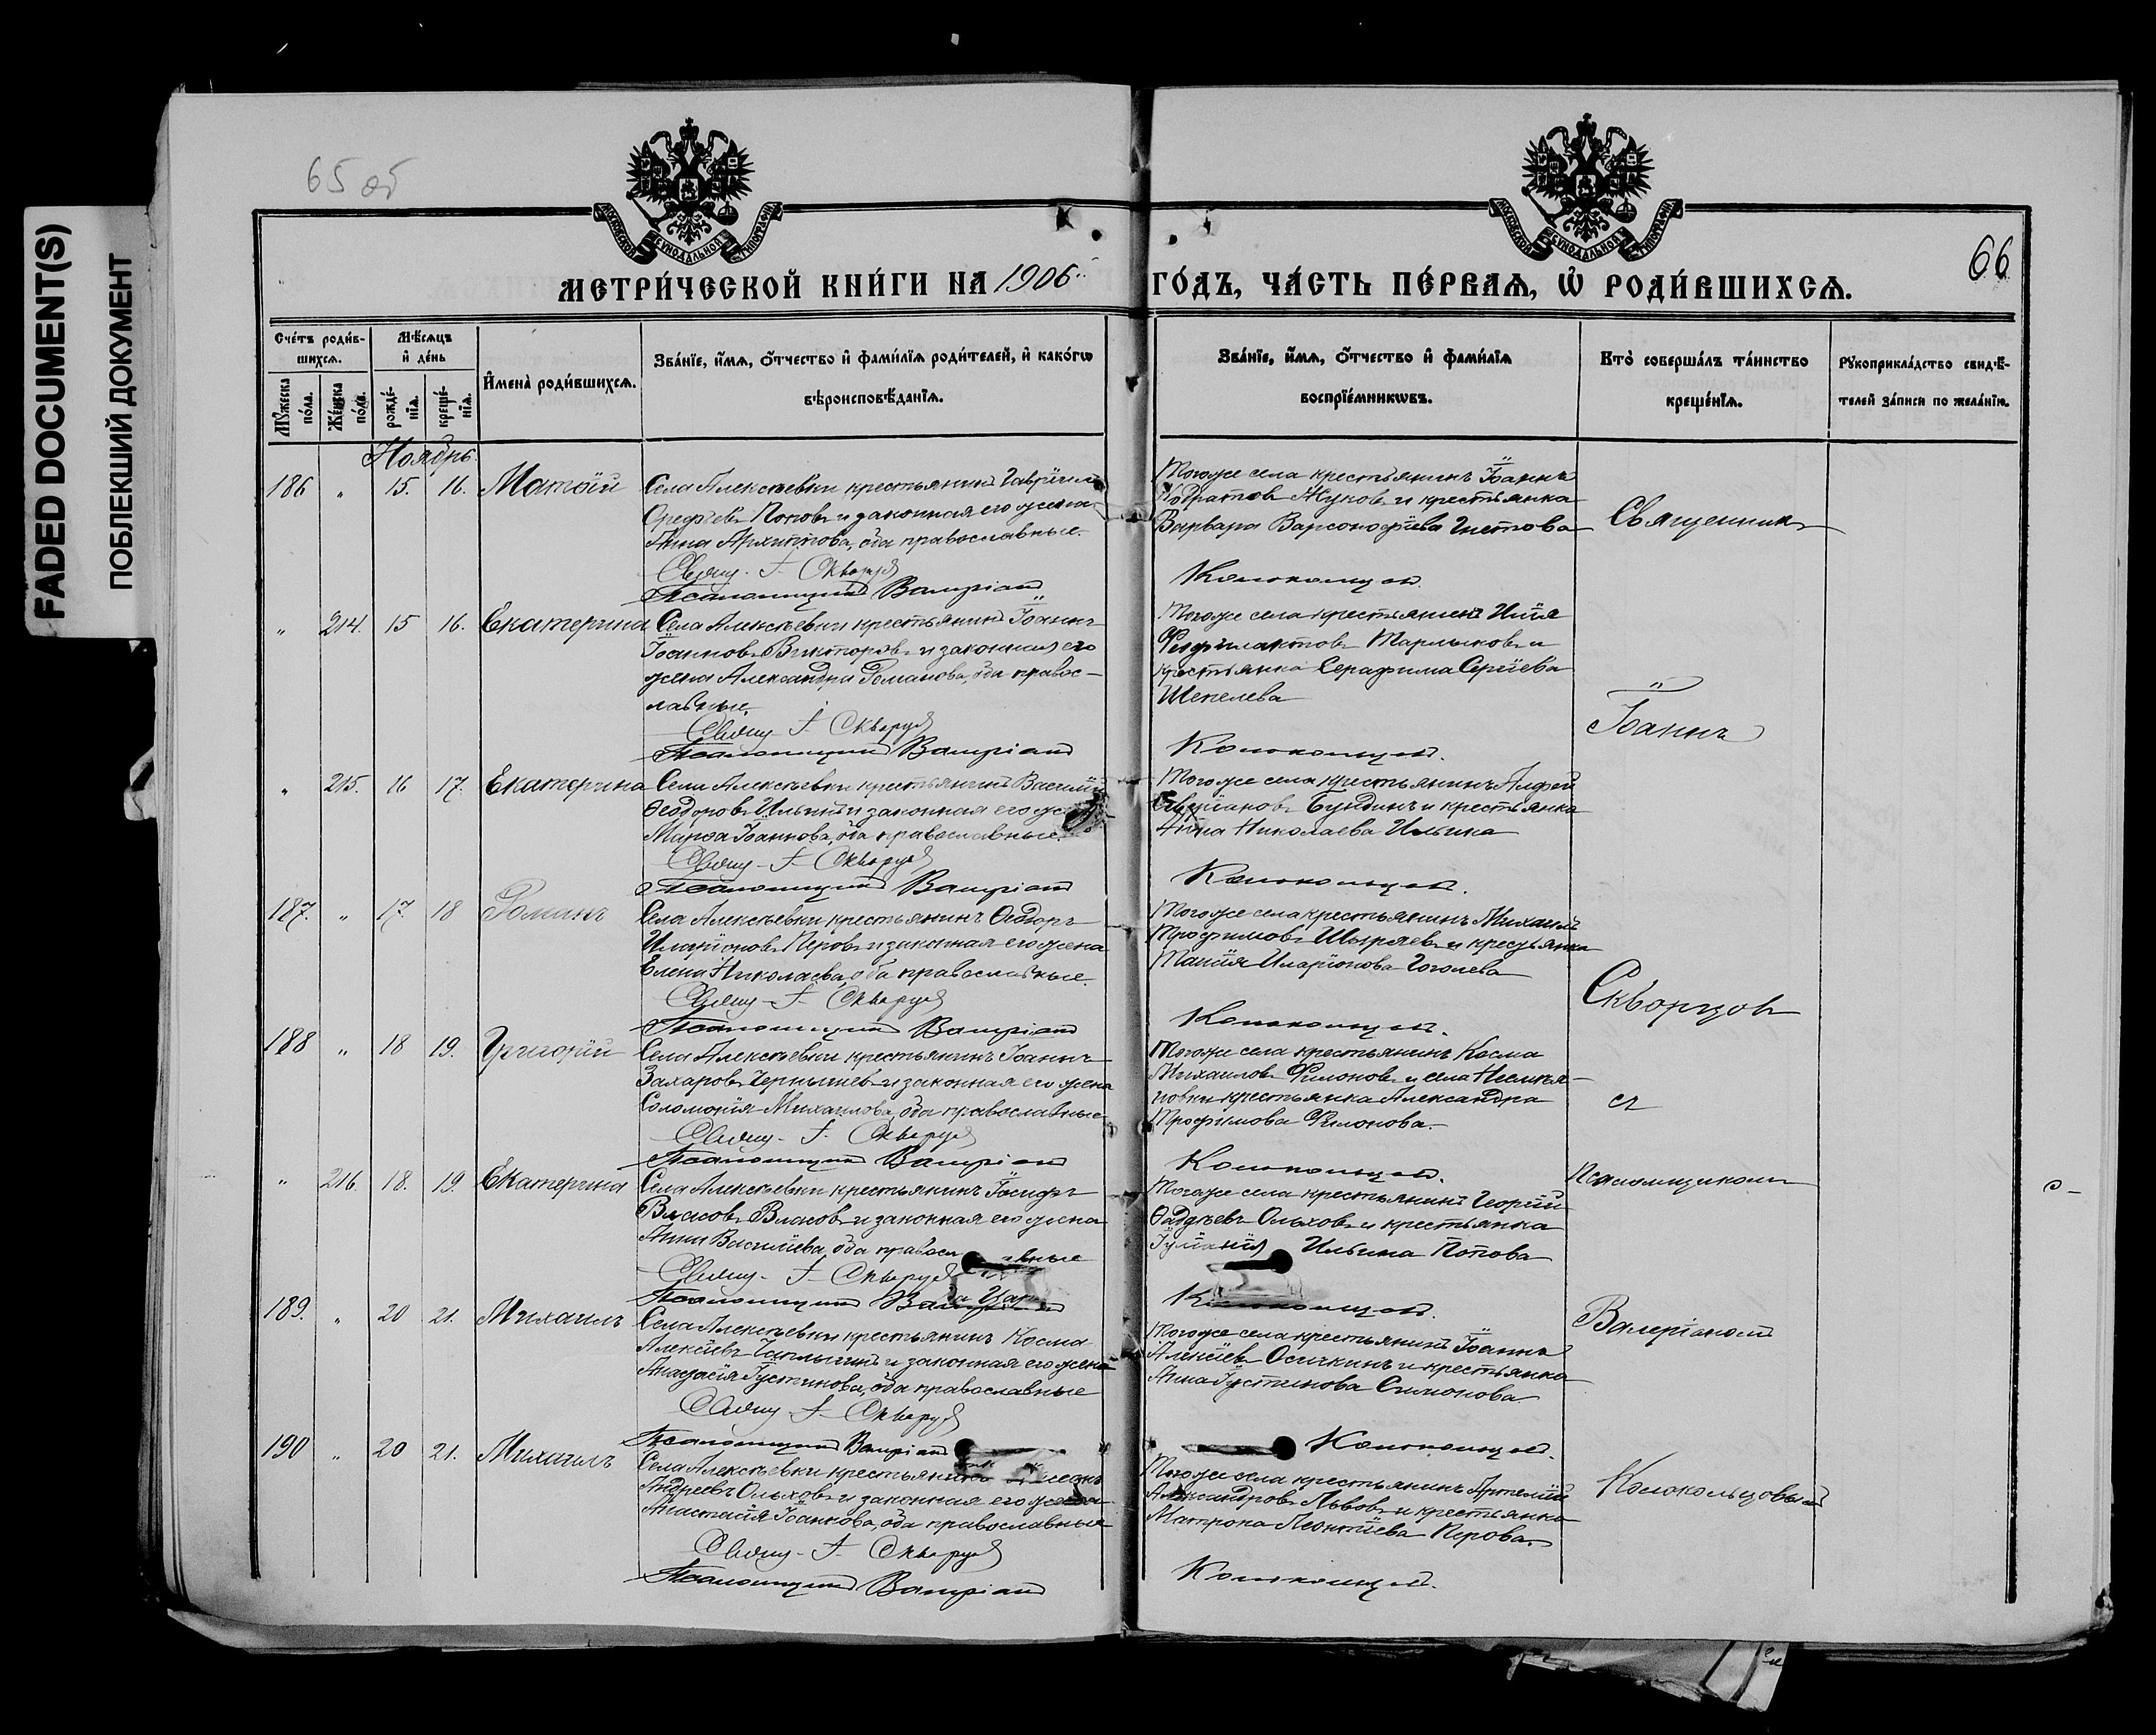 FADED DOCUMENT(S)
ПОБЛЕКШИЙ ДОКУМЕНТ
65 об
66
МОСКОВСКОЙ СѴНОДАЛЬНОЙ ТИПОГРАФІИ
МОСКОВСКОЙ СѴНОДАЛЬНОЙ ТИПОГРАФІИ
МЕТРИ́ЧЕСКОЙ КНИ́ГИ НА 1906 ГО́ДЪ, ЧА́СТЬ ПЕ́РВАѦ, Ѡ҆ РОДИ́ВШИХСѦ.
Сче́тъ роди́в-
шихсѧ.
Мꙋ́жеска по́ла.
Же́нска по́ла.
Мѣ́сѧцъ
и҆ де́нь
рожде́-
нїѧ.
креще́-
нїѧ.
И҆мена̀ роди́вшихсѧ.
Зва́нїе, и҆́мѧ, ѻ҆́тчество и҆ фами́лїѧ роди́телей, и҆ како́гѡ
вѣроисповѣ́данїѧ.
Зва́нїе, и҆́мѧ, ѻ҆́тчество и҆ фами́лїѧ
воспрїе́мникѡвъ.
Кто̀ соверша́лъ та́инство
креще́нїѧ.
Рꙋкоприкла́дство свидѣ́-
телей за́писи по жела́нїю.
Ноябрь
186 " 15. 16. Матѳій
Села Алексѣевки крестьянинъ Гавріилъ
Орефьевъ Поповъ и законная его жена
Анна Архиппова, оба православные.
Свящ. І. Скворцов
Псаломщикъ Валеріанъ
Тогоже села крестьянинъ Іоаннъ
Кодратовъ Жуковъ и крестьянка
Варвара Варсонофіева Чистова
Колокольцов.
" 214. 15 16. Екатерина
Села Алексѣевки крестьянинъ Іоаннъ
Іоанновъ Викторовъ и законная его
жена Александра Романова, оба правос-
лавные.
Свящ. І. Скворцов
Псаломщикъ Валеріанъ
Тогоже села крестьянинъ Илія
Феофилактовъ Марлыковъ и
крестьянка Серафима Сергіева
Шепелева
Колокольцов.
" 215. 16 17. Екатерина
Села Алексѣевки крестьянинъ Василій
Ѳеодоровъ Ильинъ и законная его
Марѳа Іоаннова, оба православные.
Свящ. І. Скворцов
Псаломщикъ Валеріанъ
Тогоже села крестьянинъ Алфей
Бундинъ и крестьянка
Анна Николаева Ильина
Колокольцов.
187. " 17. 18 Романъ
Села Алексѣевки крестьянинъ Ѳеодоръ
Иларіоновъ Перовъ и законная его жена
Елена Николаева, оба православные.
Свящ. І. Скворцов
Псаломщикъ Валеріанъ
Тогоже села крестьянинъ Михаилъ
Трофимовъ Ширяевъ и крестьянка
Таисія Иларіонова Гоголева
Колокольцов.
188 " 18 19. Григорій
Села Алексѣевки крестьянинъ Іоаннъ
Захаровъ Чернышевъ и законная его жена
Соломонія Михаилова, оба православные
Свящ. І. Скворцов
Псаломщикъ Валеріанъ
Тогоже села крестьянинъ Косма
Михаиловъ Филоновъ и села
крестьянка Александра
Трофимова Филонова.
Колокольцов.
" 216. 18. 19. Екатерина
Села Алексѣевки крестьянинъ Іосифъ
Власовъ Власовъ и законная его жена
Анна Василіева, оба правосл вные
Свящ. І. Скворцов
Псаломщикъ
Тогоже села крестьянинъ Георгій
Ѳаддѣевъ Ольховъ и крестьянка
Іуліанія Ильина Попова
Колокольцов.
189. " 20 21. Михаилъ
Села Алексѣевки крестьянинъ Косма
Алексіевъ Чаплыгинъ и законная его жена
Анастасія Іустинова, оба православные
Свящ. І. Скворцов
Псаломщикъ Валеріанъ
Тогоже села крестьянинъ Іоаннъ
Алексіевъ Осичкинъ и крестьянка
Анна Іустинова Симонова
Колокольцов.
190 " 20 21. Михаилъ
Села Алексѣевки крестьянинъ
Андреевъ Ольховъ и законная его жена
Анастасія Іоаннова, оба православные
Свящ. І. Скворцов
Псаломщикъ Валеріанъ
Тогоже села крестьянинъ Артемій
Александровъ Львовъ и крестьянка
Матрона Леонтіева Перова.
Колокольцов.
Священникъ
Іоаннъ
Скворцовъ
съ
Псаломщикомъ
Валеріаномъ
Колокольцовымъ